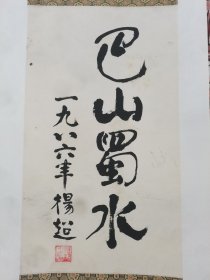 巴山蜀水
一九八六年 楊超